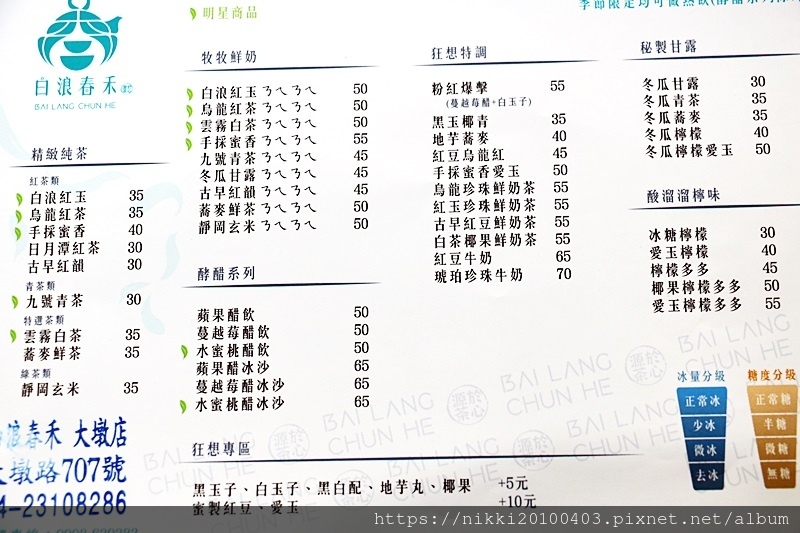 白浪春禾
BAI LANG CHUN HE
精緻純茶
紅茶類
白浪紅玉 35
烏龍紅茶 35
手採蜜香 40
日月潭紅茶 30
古早紅韻 30
青茶類
九號青茶 30
特選茶類
雲霧白茶 35
蕎麥鮮茶 35
綠茶類
靜岡玄米 35
浪春禾 大墩店
大墩路707號
4-23108286
明星商品
牧牧鮮奶
白浪紅玉ㄋㄟㄋㄟ 50
烏龍紅茶ㄋㄟㄋㄟ 50
雲霧白茶ㄋㄟㄋㄟ 50
手採蜜香ㄋㄟㄋㄟ 55
九號青茶ㄋㄟㄋㄟ 45
冬瓜甘露ㄋㄟㄋㄟ 45
古早紅韻ㄋㄟㄋㄟ 45
蕎麥鮮茶ㄋㄟㄋㄟ 50
靜岡玄米ㄋㄟㄋㄟ 50
酵醋系列
蘋果醋飲 50
蔓越莓醋飲 50
水蜜桃醋飲 50
蘋果醋冰沙 65
蔓越莓醋冰沙 65
水蜜桃醋冰沙 65
狂想專區
黑玉子、白玉子、黑白配、地芋丸、椰果 +5元
蜜製紅豆、愛玉 +10元
狂想特調
粉紅爆擊 55
(蔓越莓醋+白玉子)
黑玉椰青 35
地芋蕎麥 40
紅豆烏龍紅 45
手採蜜香愛玉 50
烏龍珍珠鮮奶茶 55
紅玉珍珠鮮奶茶 55
古早紅豆鮮奶茶 55
白茶椰果鮮奶茶 55
紅豆牛奶 65
琥珀珍珠牛奶 70
秘製甘露
冬瓜甘露 30
冬瓜青茶 35
冬瓜蕎麥 35
冬瓜檸檬 40
冬瓜檸檬愛玉 50
酸溜溜檸味
冰糖檸檬 30
愛玉檸檬 40
檸檬多多 45
椰果檸檬多多 50
愛玉檸檬多多 55
BAI LANG CHUN HE
源於茶心
冰量分級
正常冰
少冰
微冰
去冰
糖度分級
正常糖
半糖
微糖
無糖
https://nikki20100403.pixnet.net/album